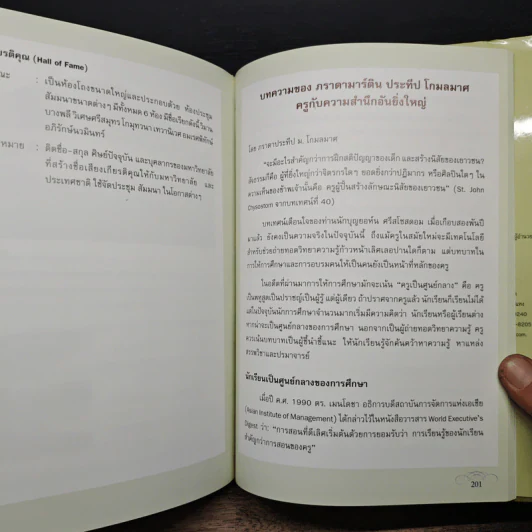 รติคุณ (Hall of Fame)
ณะ : เป็นห้องโถงขนาดใหญ่และประกอบด้วย ห้องประชุม
สัมมนาขนาดต่างๆ มีทั้งหมด ๖ ห้อง มีชื่อเรียกดังนี้
บางพลี วิเศษศรีสมุทร
อภิรักษ์นวมินทร์
หมาย : ติดชื่อ-สกุล ศิษย์ปัจจุบัน และบุคลากรของมหาวิทยาลัย
ที่สร้างชื่อเสียงเกียรติคุณให้กับมหาวิทยาลัย และ
ประเทศชาติ ใช้จัดประชุม สัมมนา ในโอกาสต่างๆ
บทความของ ภราดามาร์ติน ประทีป โกมลมาศ
ครูกับความสำนึกอันยิ่งใหญ่
โดย ภราดาประทีป ม. โกมลมาศ
"จะมีอะไรสำคัญกว่าการฝึกสติปัญญาของเด็ก และสร้างนิสัยของเยาวชน?
ผู้ที่ยิ่งใหญ่กว่าจิตรกรใดๆ ยอดยิ่งกว่าปฏิมากร หรือศิลปินใดๆ ใน
ความเห็นของข้าพเจ้านั้นคือ ครูผู้ปั้นสร้างลักษณะนิสัยของเยาวชน" (St. John
Chrysostom จากบทเทศน์ที่ 40)
บทเทศน์เตือนใจของท่านนักบุญยอห์น คริสโซสตอม เมื่อเกือบสองพันปี
มาแล้ว ยังคงเป็นความจริงในปัจจุบันนี้ ถึงแม้ครูในสมัยใหม่จะมีเทคโนโลยี
สำหรับช่วยถ่ายทอดวิทยาความรู้ก้าวหน้าเลิศเลอปานใดก็ตาม แต่บทบาทใน
การให้การศึกษาและการอบรมคนให้เป็นคนยังเป็นหน้าที่หลักของครู
ในอดีตที่ผ่านมาการให้การศึกษามักจะเน้น "ครูเป็นศูนย์กลาง" คือ ครู
เป็นพหูสูตเป็นปราชญ์เป็นผู้รู้ แต่ผู้เดียว ถ้าปราศจากครูแล้ว นักเรียนก็เรียนไม่ได้
แต่ในปัจจุบันนักการศึกษาจำนวนมากเริ่มมีความคิดว่า นักเรียนหรือผู้เรียนต่าง
หากน่าจะเป็นศูนย์กลางของการศึกษา นอกจากเป็นผู้ถ่ายทอดวิทยาความรู้ ครู
ควรเน้นบทบาทเป็นผู้ชี้นำชี้แนะ ให้นักเรียนรู้จักค้นคว้าหาความรู้ หาแหล่ง
และปรมาจารย์
นักเรียนเป็นศูนย์กลางของการศึกษา
เมื่อปี ค.ศ. 1990 ดร. เมนโดซา อธิการบดีสถาบันการจัดการแห่งเอเชีย
(Asian Institute of Management) ได้กล่าวไว้ในหนังสือวารสาร World Executive's
Digest ว่า: "การสอนที่ดีเลิศเริ่มต้นด้วยการยอมรับว่า การเรียนรู้ของนักเรียน
สำคัญกว่าการสอนของครู"
201